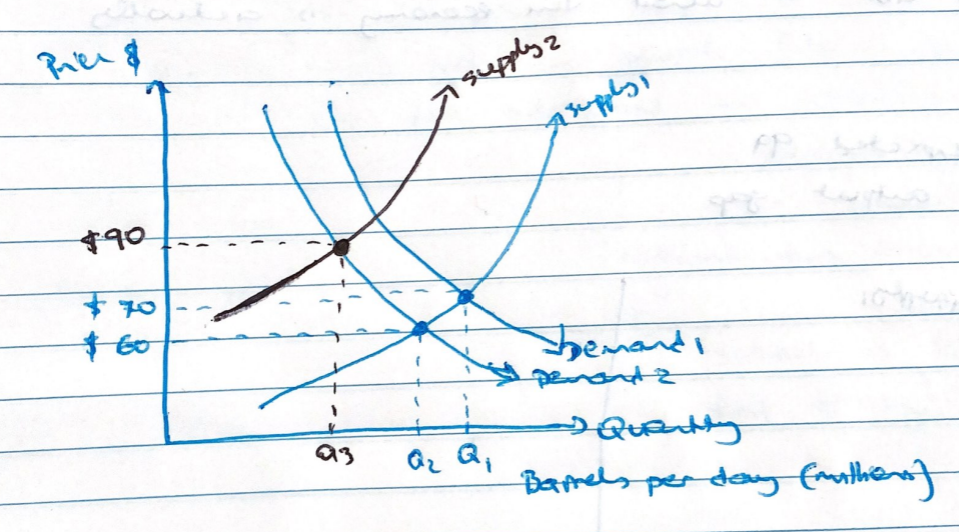 Price $
supply2
supply1
$90
$70
$60
Demand1
Demand2
Quantity
Q3
Q2
Q1
Barrels per day (millions)